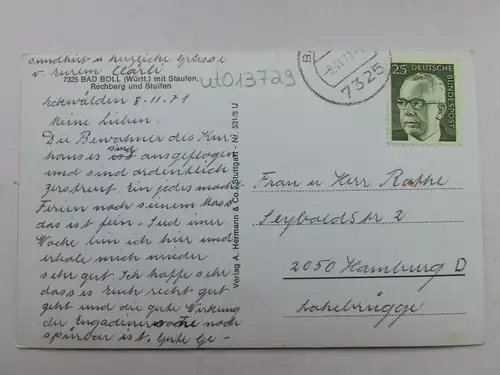 sundheit u herzliche Grüsse
v. Eurem Clärli
7325 BAD BOLL (Württ.) mit Staufen,
Rechberg und Stuifen
ut013729
Eckwälden 8.11.71
Meine Lieben.
Die Bewohner des Kur
hauses sind ist ausgeflogen
und sind ordentlich
zerstreut. Ein jedes macht
Ferien nach seinem Mass
das ist fein. Seid einer
Woche bin ich hier und
erhole mich wieder
sehr gut. Ich hoffe sehr
dass es Euch recht gut
geht und die gute Wirkung
der Engadiner noch
spürbar ist. Gute Ge-
Verlag A. Hermann & Co., Stuttgart - Nr. 531/5 U
7325
25 DEUTSCHE
BUNDESPOST
Frau u Herr Rathe
Seyboldstr 2
2050 Hamburg D
Lohebrügge